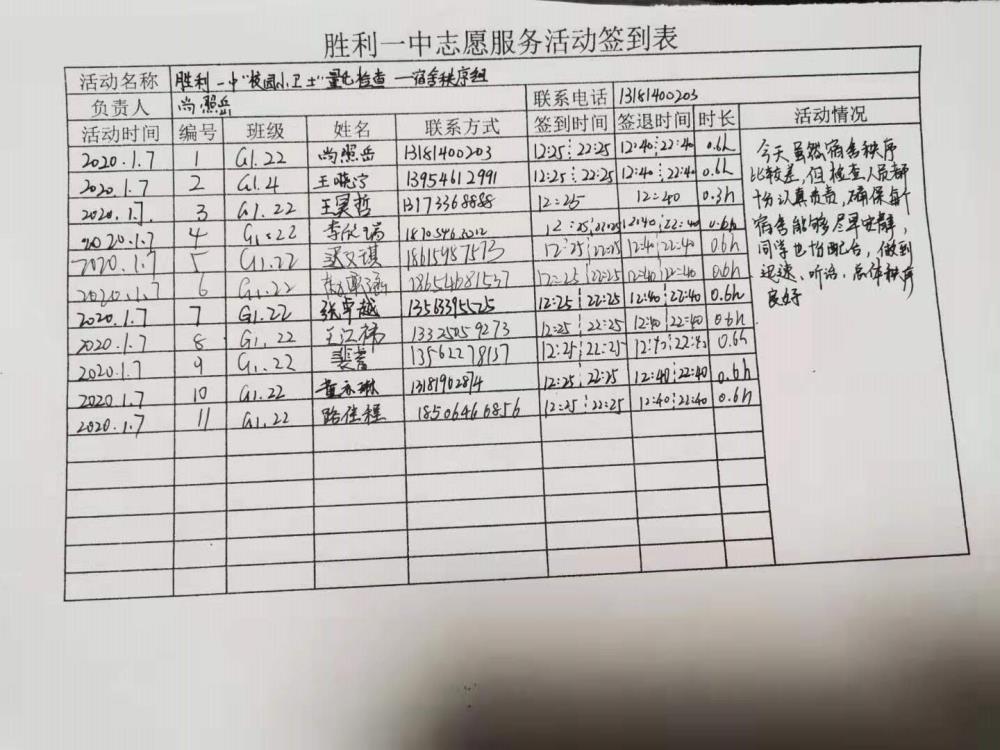 胜利一中志愿服务活动签到表
活动名称 胜利一中"校园小卫士"量化检查—宿舍秩序组
负责人 尚照岳 联系电话 13181400203
活动时间 编号 班级 姓名 联系方式 签到时间 签退时间 时长 活动情况
2020.1.7 1 G1.22 尚照岳 13181400203 12:25 22:25 12:40 22:40 0.6h
2020.1.7 2 G1.4 13954612991 12:25 22:25 12:40 22:40 0.6h
2020.1.7. 3 G1.22 王昊哲 13173368888 12:25 12:40 0.3h
2020.1.7 4 G1.22 12:25 22:25 12:40 22:40 0.6h
2020.1.7 5 G1.22 12:25 22:25 12:40 22:40 0.6h
2020.1.7 6 G1.22 12:25 22:25 12:40 22:40 0.6h
2020.1.7 7 G1.22 张卓越 12:25 22:25 12:40 22:40 0.6h
2020.1.7 8 G1.22 王江祎 13325059273 12:25 22:25 12:40 22:40 0.6h
2020.1.7 9 G1.22 13562278137 12:25 22:25 0.6h
2020.1.7 10 G1.22 董亦琳 12:25 22:25 12:40 22:40 0.6h
2020.1.7 11 G1.22 路佳程 18506466856 12:25 22:25 12:40 22:40 0.6h
今天虽然宿舍秩序
比较差,但检查人员都
十份认真负责,确保每个
宿舍能够尽早安静,
同学也怡配合,做到
迅速、听话,总体秩序
良好